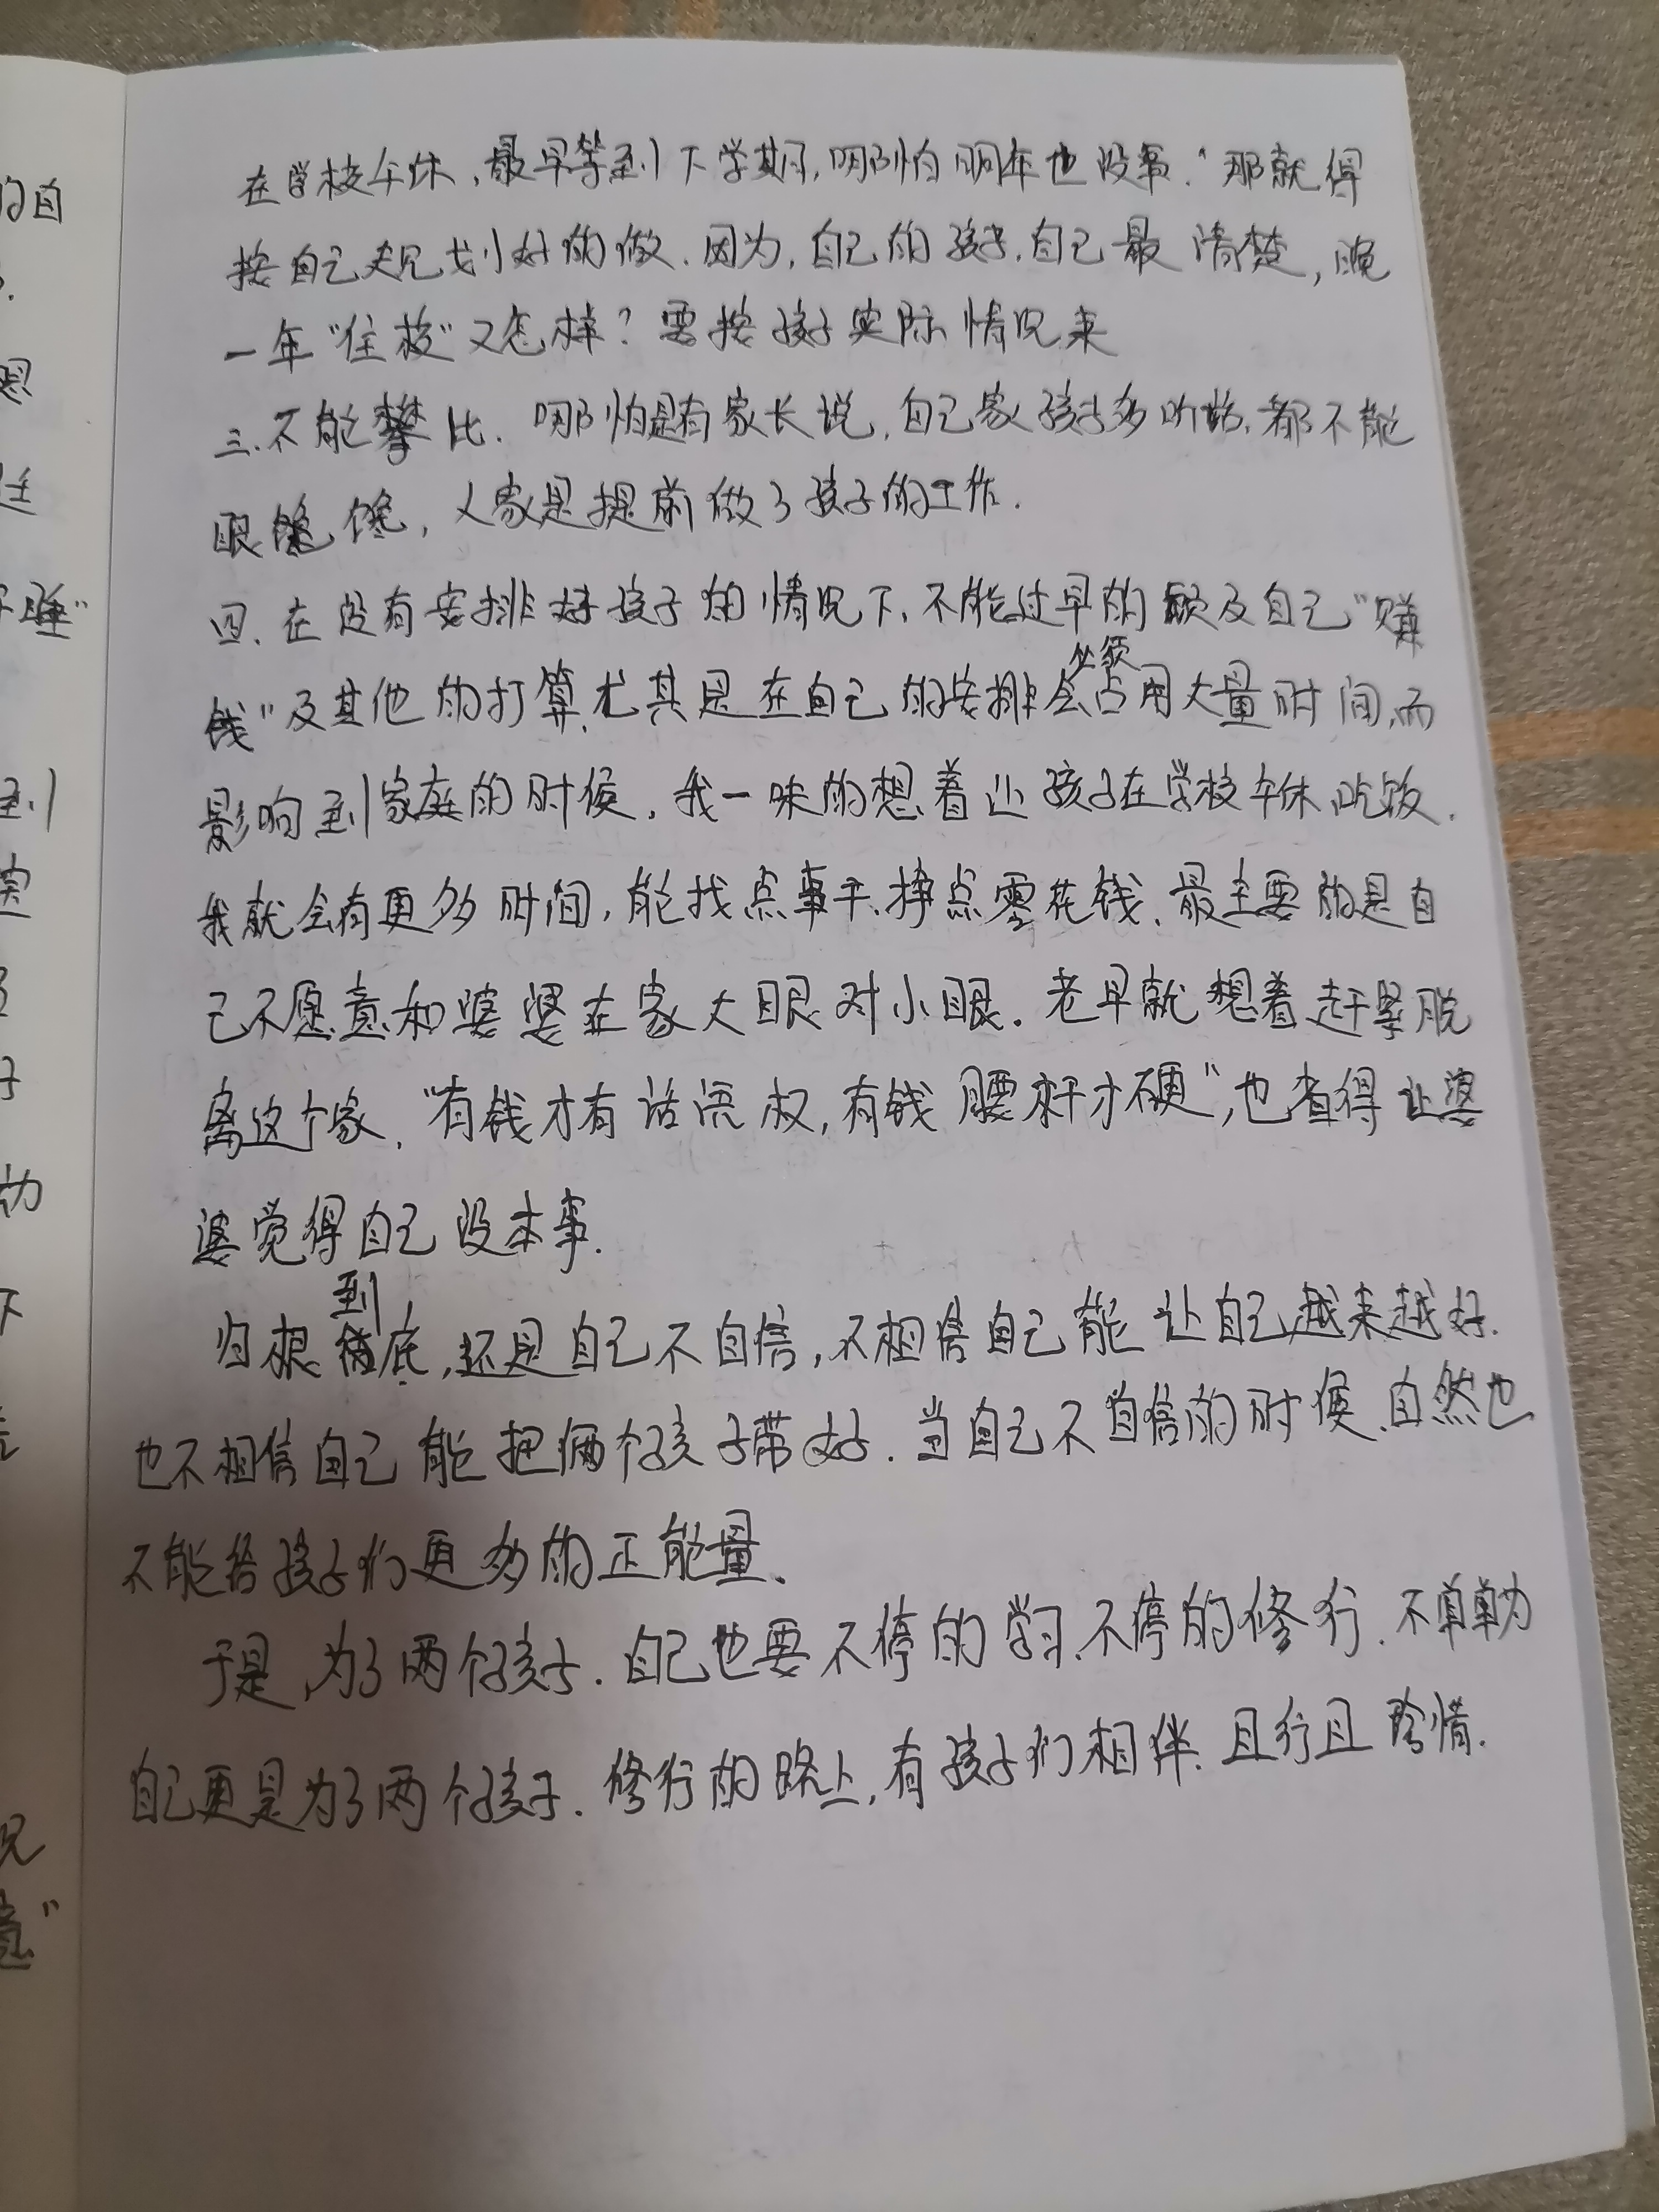 在学校午休,最早等到下学期,哪怕明年也没事."那就得
按自己规划好的做.因为,自己的孩子,自己最清楚,晚
一年"住校"又怎样?要按孩子实际情况来
三.不能攀比.哪怕是有家长说,自己家孩子多听话,都不能
眼馋,人家是提前做了孩子的工作.
四.在没有安排好孩子的情况下,不能过早的顾及自己"赚
钱"及其他的打算,尤其是在自己的安排会必须占用大量时间,而
影响到家庭的时候.我一味的想着让孩子在学校午休,吃饭.
我就会有更多时间,能找点事干,挣点零花钱.最主要的是自
己不愿意和婆婆在家大眼对小眼.老早就想着赶紧脱
离这个家."有钱才有话语权,有钱腰杆才硬",也省得让婆
婆觉得自己没本事.
归根到底,还是自己不自信,不相信自己能让自己越来越好.
也不相信自己能把俩个孩子带好.当自己不自信的时候,自然也
不能给孩子们更多的正能量.
于是,为了两个孩子.自己也要不停的学习,不停的修行.不单单为
自己更是为了两个孩子.修行的路上,有孩子们相伴.且行且珍惜.